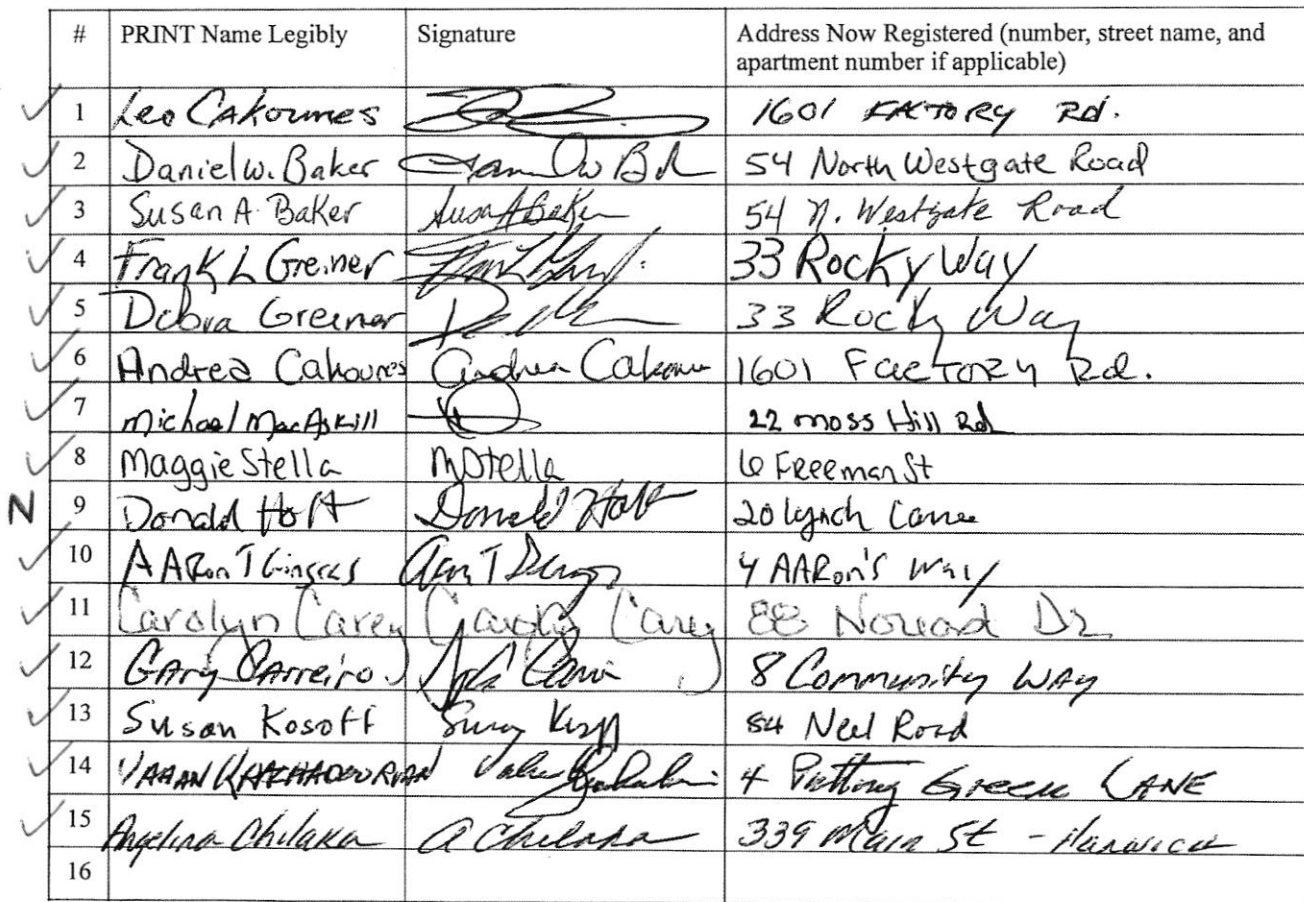 # PRINT Name Legibly Signature Address Now Registered (number, street name, and
apartment number if applicable)
✓ 1 Leo CAkounes 1601 FACTORY Rd.
✓ 2 Daniel W. Baker Dan W B 54 North Westgate Road
✓ 3 Susan A. Baker Susan A Baker 54 N. Westgate Road
✓ 4 Frank L Greiner 33 Rocky Way
✓ 5 Debra Greiner 33 Rocky Way
✓ 6 Andrea Cakounes Andrea Cakoune 1601 FacTORy Rd.
✓ 7 Michael MacAskill 22 Moss Hill Rd
✓ 8 Maggie Stella MStella 6 Freeman St
N 9 Donald Holt Donald Holt 20 Lynch Lane
✓ 10 AARon T Gingras 4 AARon's Way
✓ 11 Carolyn Carey Carolyn Carey 88 Dr
✓ 12 Gary Carreiro 8 Community Way
✓ 13 Susan Kosoff 84 Neel Road
✓ 14 VAHAN KHACHADOORIAN 4 Putting Green LANE
✓ 15 Angelina Chilaka A Chilaka 339 Main St - Harwich
16